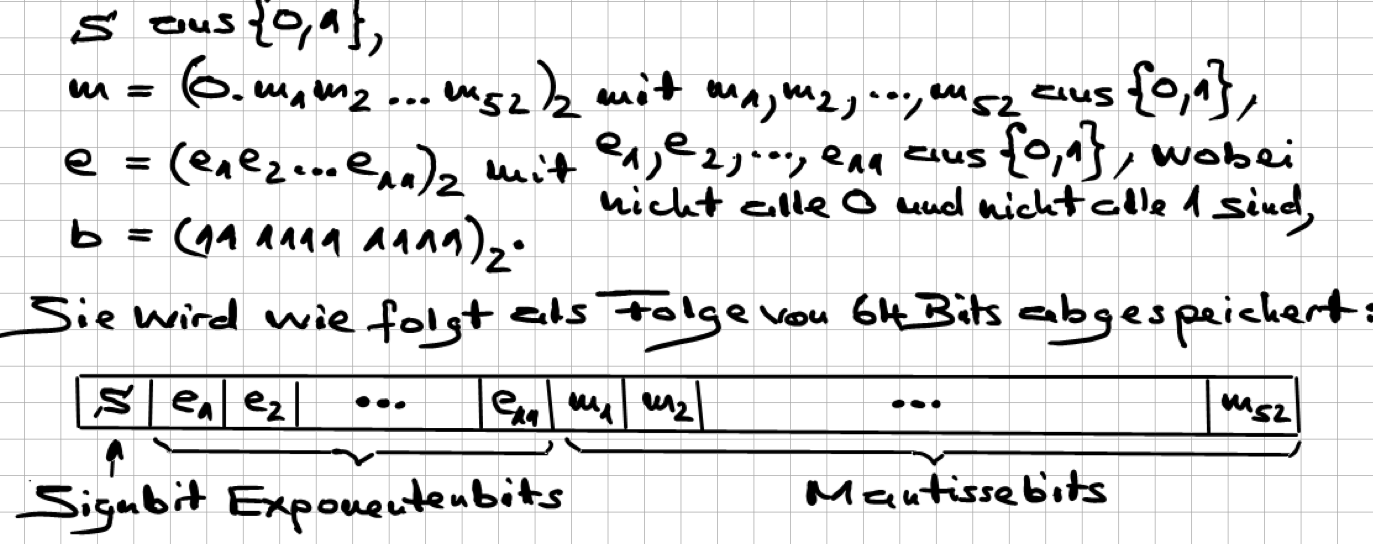 S aus {0,1},
m = (0.m₁m₂...m₅₂)₂ mit m₁,m₂,...,m₅₂ aus {0,1},
e = (e₁e₂...e₁₁)₂ mit e₁,e₂,...,e₁₁ aus {0,1}, wobei
nicht alle 0 und nicht alle 1 sind,
b = (11 1111 1111)₂.
Sie wird wie folgt als Folge von 64 Bits abgespeichert:
S e₁ e₂ ... e₁₁ m₁ m₂ ... m₅₂
Signbit Exponentenbits Mantissebits